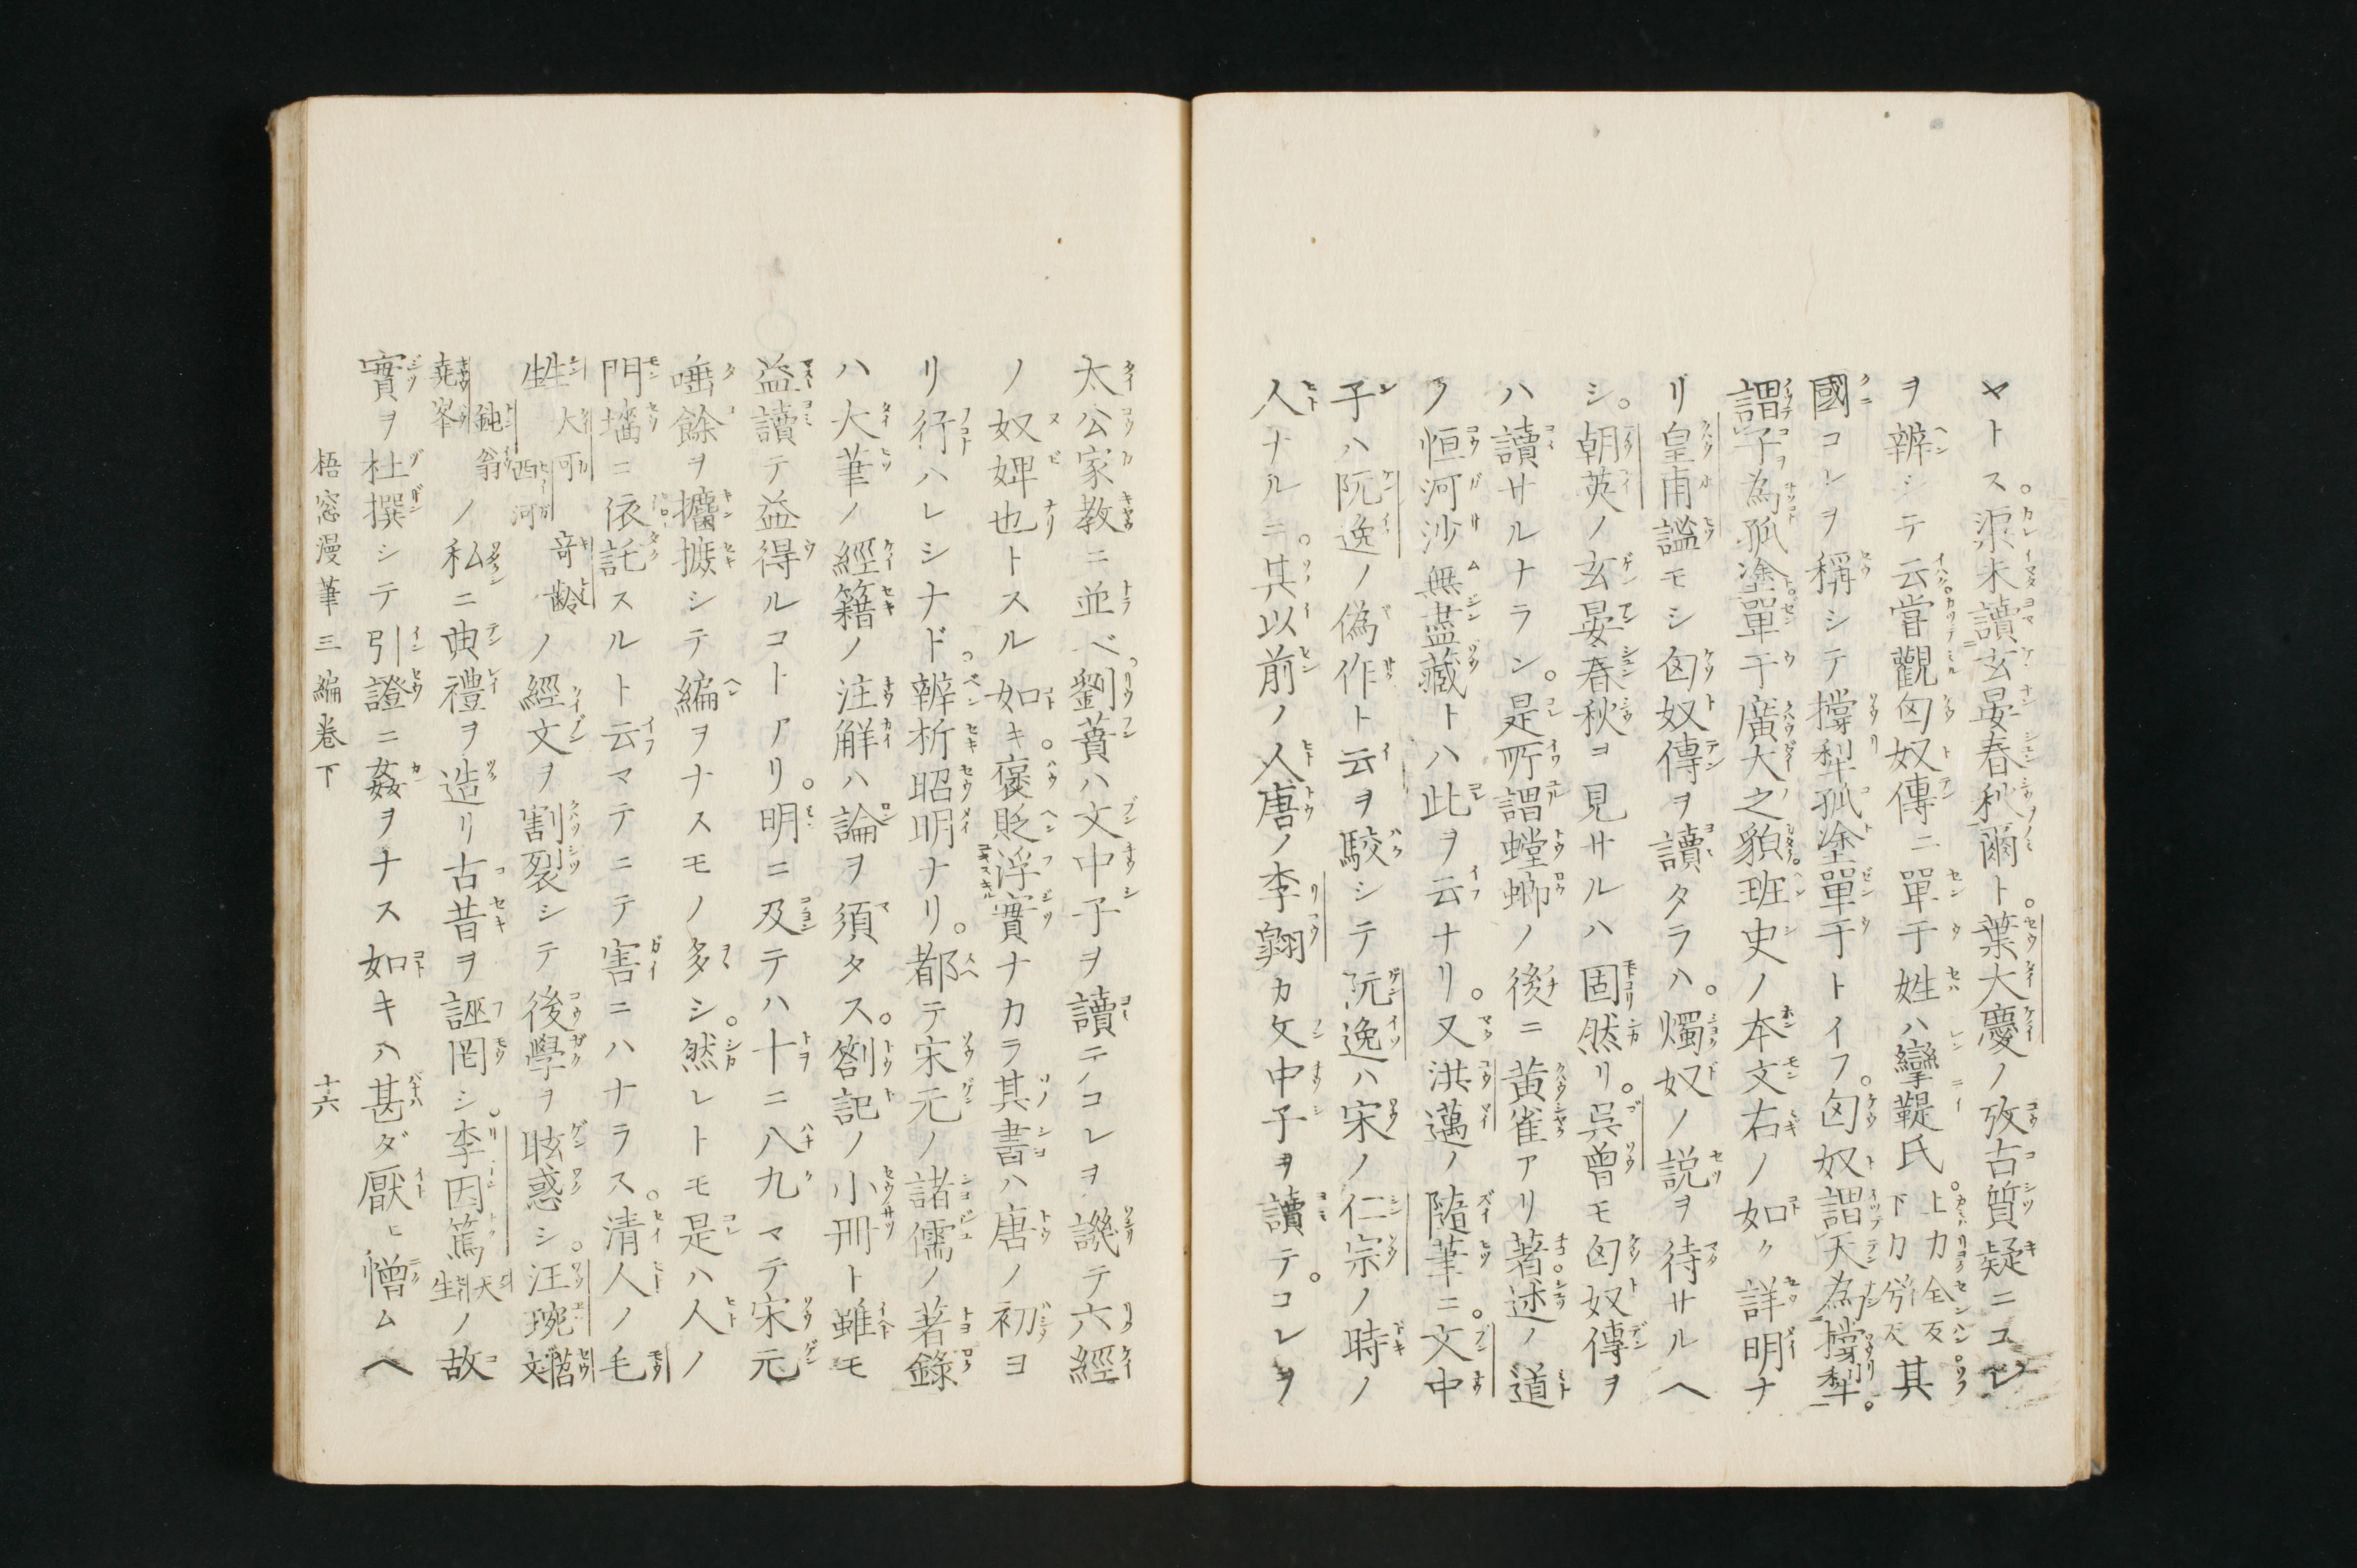 ヤトス。渠未讀玄晏春秋爾ト。葉大慶ノ攷古質疑ニコレ
ヲ辨シテ云。甞觀匈奴傳ニ單于姓ハ攣鞮氏。上力全反下力兮反其
國コレヲ稱シテ撐犁孤塗單于トイフ。匈奴謂天為撐犁。
謂子為孤塗。單于廣大之貌。班史ノ本文右ノ如ク詳明ナ
リ皇甫謐モシ匈奴傳ヲ讀タラハ。燭奴ノ説ヲ待サルヘ
シ。朝英ノ玄晏春秋ヲ見サルハ固然リ。呉曾モ匈奴傳ヲ
ハ讀サルナラン。是所謂螳蜋ノ後ニ黄雀アリ著述ノ道
ノ恒河沙無盡藏トハ此ヲ云ナリ。又洪邁ノ隨筆ニ。文中
子ハ阮逸ノ偽作ト云ヲ駁シテ阮逸ハ宋ノ仁宗ノ時ノ
人ナルニ。其以前ノ人唐ノ李翶カ文中子ヲ讀テ。コレヲ
太公家教ニ並ベ。劉蕡ハ文中子ヲ讀テコレヲ譏テ六經
ノ奴婢也トスル如キ。褒貶浮實ナカラ其書ハ唐ノ初ヨ
リ行ハレシナド。辨析昭明ナリ。都テ宋元ノ諸儒ノ著錄
ハ大筆ノ經籍ノ注解ハ論ヲ須タス。劄記ノ小冊ト雖モ
益讀テ益得ルコトアリ。明ニ及テハ十ニ八九マテ宋元
唾餘ヲ攟摭シテ編ヲナスモノ多シ。然レトモ是ハ人ノ
門墻ニ依託スルト云マテニテ害ニハナラス。清人ノ毛
甡大可西河竒齡ノ經文ヲ割裂シテ後學ヲ眩惑シ。汪琬苕文
鈍翁堯峯ノ私ニ典禮ヲ造リ古昔ヲ誣罔シ。李因篤天生ノ故
實ヲ杜撰シテ引證ニ姦ヲナス如キハ甚ダ厭ヒ憎ムヘ
梧窓漫筆三編巻下　十六